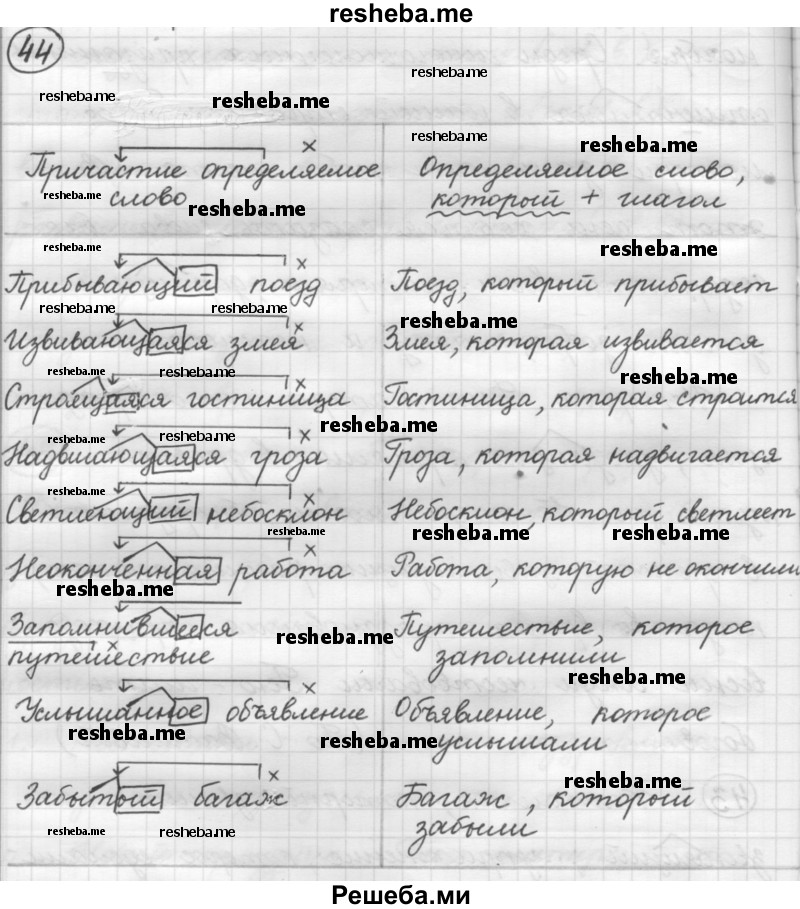 resheba.me
44
resheba.me
resheba.me resheba.me
resheba.me
resheba.me
Причастие определяемое Определяемое слово,
resheba.me слово resheba.me который + глагол
resheba.me resheba.me
Прибывающий поезд Поезд, который прибывает
resheba.me resheba.me resheba.me
Извивающаяся змея Змея, которая извивается
resheba.me resheba.me resheba.me
Строещаяся гостиница Гостиница, которая строится
resheba.me resheba.me resheba.me
Надвигающаяся гроза Гроза, которая надвигается
resheba.me resheba.me
Светлеющий небосклон Небосклон, который светлеет
resheba.me resheba.me resheba.me
Неоконченная работа Работа, которую не окончили
resheba.me
Запомнившееся resheba.me Путешествие, которое
путешествие запомнили
resheba.me
Услышанное объявление Объявление, которое
resheba.me resheba.me услышали
resheba.me
Забытый багаж Багаж, который
resheba.me resheba.me забыли
43
Решеба.ми